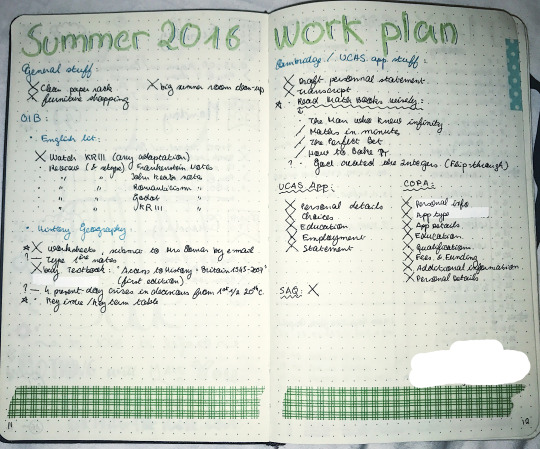 Summer 2016
General stuff:
X Clean paper rack
X big summer room clean-up
X furniture shopping
OIB:
• English Lit:
X Watch KRIII (any adaptation)
• Rewrite (& retype) Frankenstein notes
• " " John Keats notes
• " " Romanticism "
• " " Godot "
• " " KRIII "
• History Geography:
X Worksheets, submit to Mrs by email
? — Type the notes
X Buy textbook: "Access to History: Britain 1945-2007"
(first edition)
? — 4 present-day crises in decisions from 1st 1/2 20th C.
• Key issue / Key term table
11
Work plan
Cambridge / UCAS app stuff:
X Draft personal statement
X Manuscript
• Read Math Books nicely:
• The Man who Knew infinity
/ Maths in minute
/ The Perfect Bet
/ How to Bake Pi
? • God created the Integers (Flip through)
UCAS App:
X Personal details
X Choices
X Education
X Employment
X Statement
COPA:
X Personal info
X App type
X App details
X Education
X Qualification
X Fees & Funding
X Additional information
X Personal Details
SAQ: X
12